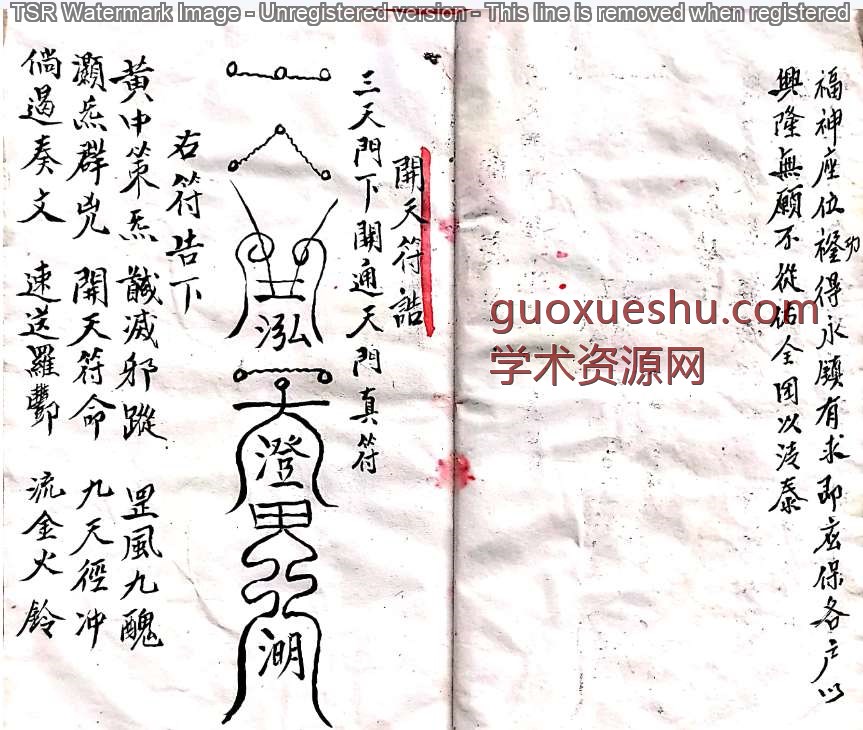 TSR Watermark Image - Unregistered version - This line is removed when registered
福神座位 得永鎮有求即應保各戶以
興隆無願不從佑全國以清泰
guoxueshu.com
学术资源网
開天符誥
三天門下開通天門真符
泓
澄
湖
右符告下
黃中策炁 馘滅邪蹤 罡風九醜
灝炁群兇 開天符命 九天徑冲
倘遏奏文 速送羅酆 流金火鈴